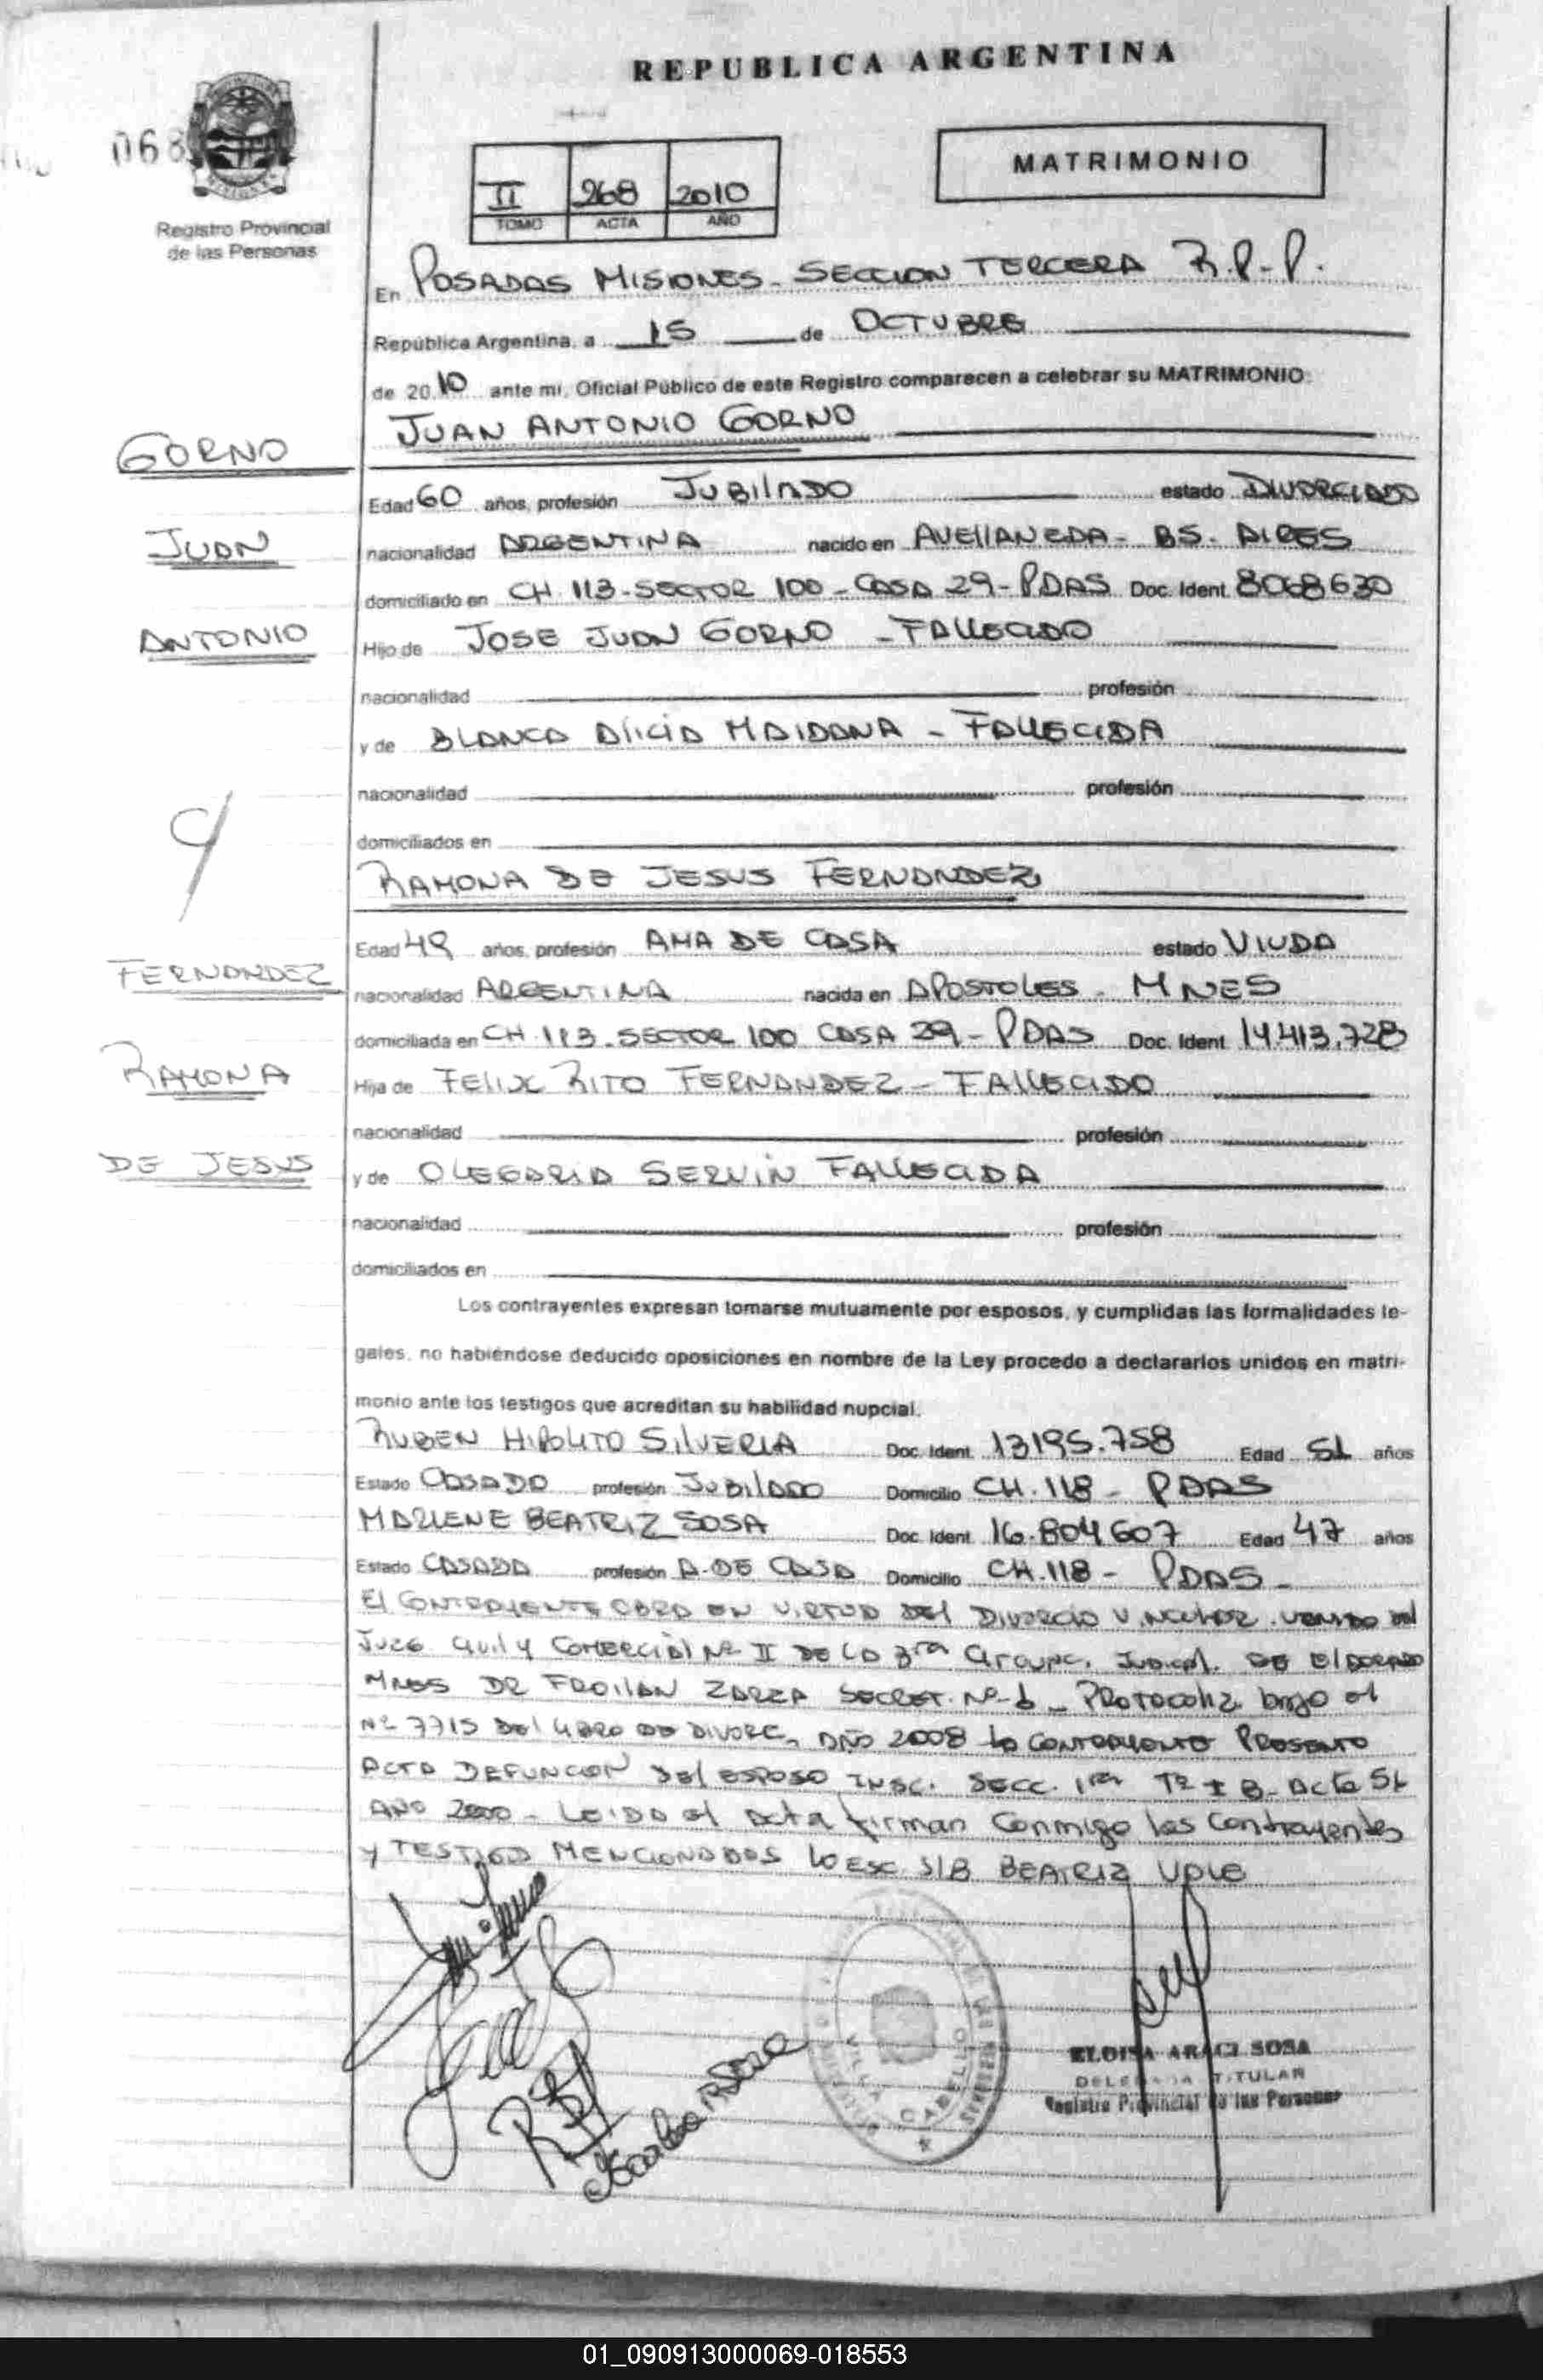 REPUBLICA ARGENTINA
068
Registro Provincial
de las Personas
II 268 2010
TOMO ACTA AÑO
MATRIMONIO
En POSADAS MISIONES - SECCION TERCERA R.P-P.
República Argentina, a 15 de OCTUBRE
de 20 10 ante mi, Oficial Público de este Registro comparecen a celebrar su MATRIMONIO:
JUAN ANTONIO GORNO
GORNO
Edad 60 años, profesión JUBILADO estado DIVORCIADO
JUAN
nacionalidad ARGENTINA nacido en AVELLANEDA - BS. AIRES
domiciliado en CH. 113 - SECTOR 100 - CASA 29 - PDAS Doc. Ident. 8068630
ANTONIO
Hijo de JOSE JUAN GORNO - FALLECIDO
nacionalidad profesión
y de BLANCA ALICIA MAIDANA - FALLECIDA
nacionalidad profesión
domiciliados en
RAMONA DE JESUS FERNANDEZ
Edad 49 años, profesión AMA DE CASA estado VIUDA
FERNANDEZ
nacionalidad ARGENTINA nacida en APOSTOLES - MNES
domiciliada en CH. 113. SECTOR 100 CASA 29 - PDAS Doc. Ident. 14.413.728
RAMONA
Hija de FELIX RITO FERNANDEZ - FALLECIDO
nacionalidad profesión
DE JESUS
y de OLEGARIA SERVIN FALLECIDA
nacionalidad profesión
domiciliados en
Los contrayentes expresan tomarse mutuamente por esposos, y cumplidas las formalidades le-
gales, no habiéndose deducido oposiciones en nombre de la Ley procedo a declararlos unidos en matri-
monio ante los testigos que acreditan su habilidad nupcial.
RUBEN HIPOLITO SILVERIA Doc. Ident. 13195.758 Edad 51 años
Estado CASADO profesión JUBILADO Domicilio CH. 118 - PDAS
MARLENE BEATRIZ SOSA Doc. Ident. 16.804607 Edad 47 años
Estado CASADA profesión A. DE CASA Domicilio CH. 118 - PDAS -
El CONTRAYENTE OBRA EN VIRTUD DEL DIVORCIO VINCULAR
JUZG. Civil y COMERCIAL Nº II DE LA 3ra Circunc. Judicial. DE ElDORADO
MNES DR FROILAN ZARZA SECRET. Nº PROTOCOLIZ. bajo el
Nº 7715 Del LIBRO DE DIVORC, AÑO 2008 LA CONTRAYENTE PRESENTO
ACTA DEFUNCION DEL ESPOSO INSC. SECC. 1ra Tº I B. ACTA 51
AÑO 2000 - LEIDA el acta firman conmigo los contrayentes
Y TESTIGOS MENCIONADOS LO ESC. S/B BEATRIZ
VILLA CABELLO
ELOISA ARACI SOSA
DELEGADA TITULAR
Registro Provincial de las Personas
01_090913000069-018553